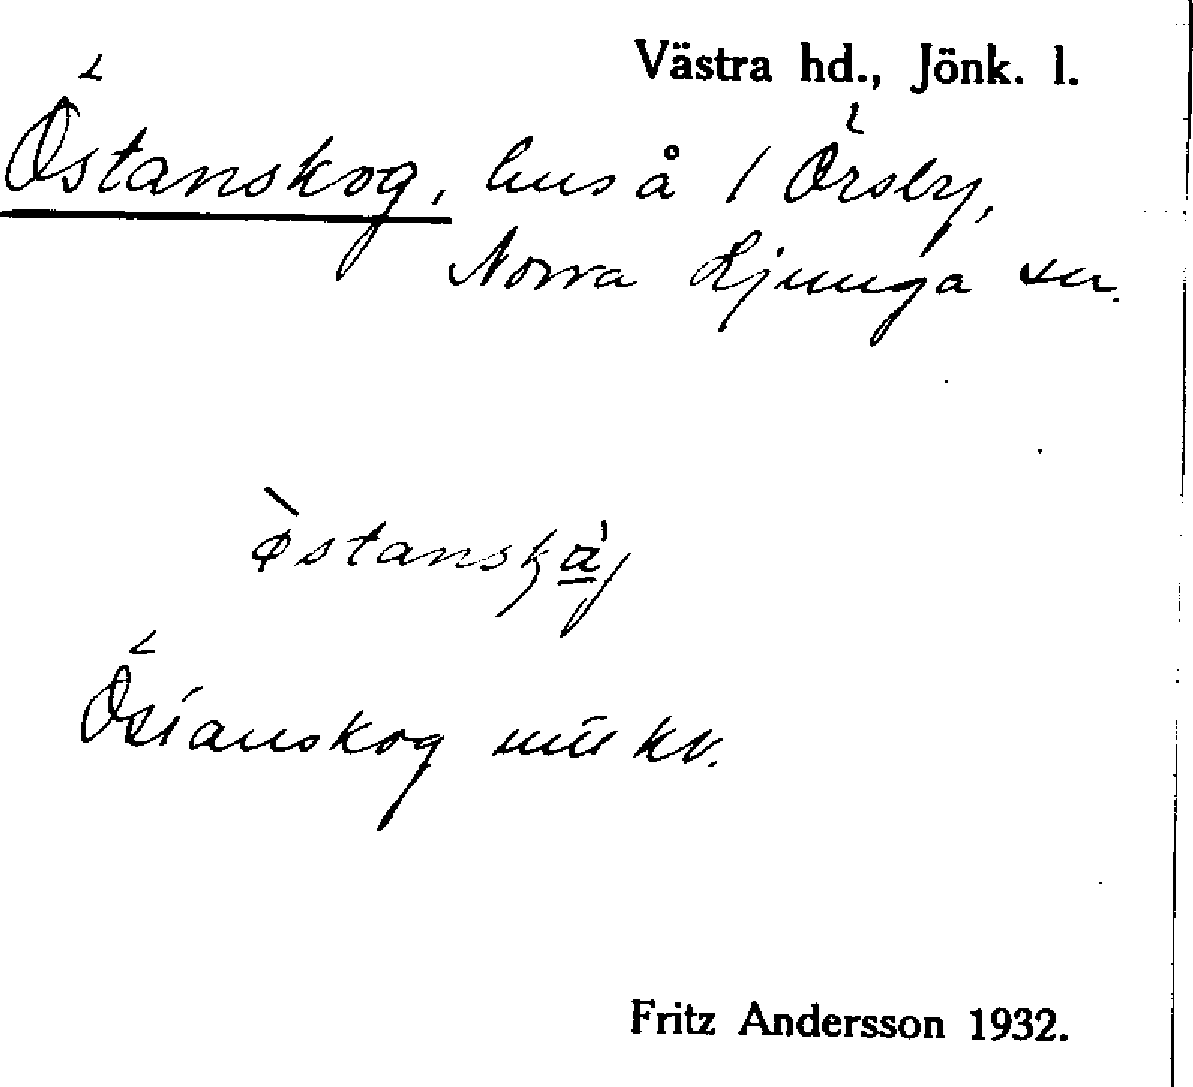 Västra hd., Jönk. l.
Östanskog, hus å 1 Örsby,
Norra Ljunga sn.
østanskàg
Östanskog mtl kv.
Fritz Andersson 1932.